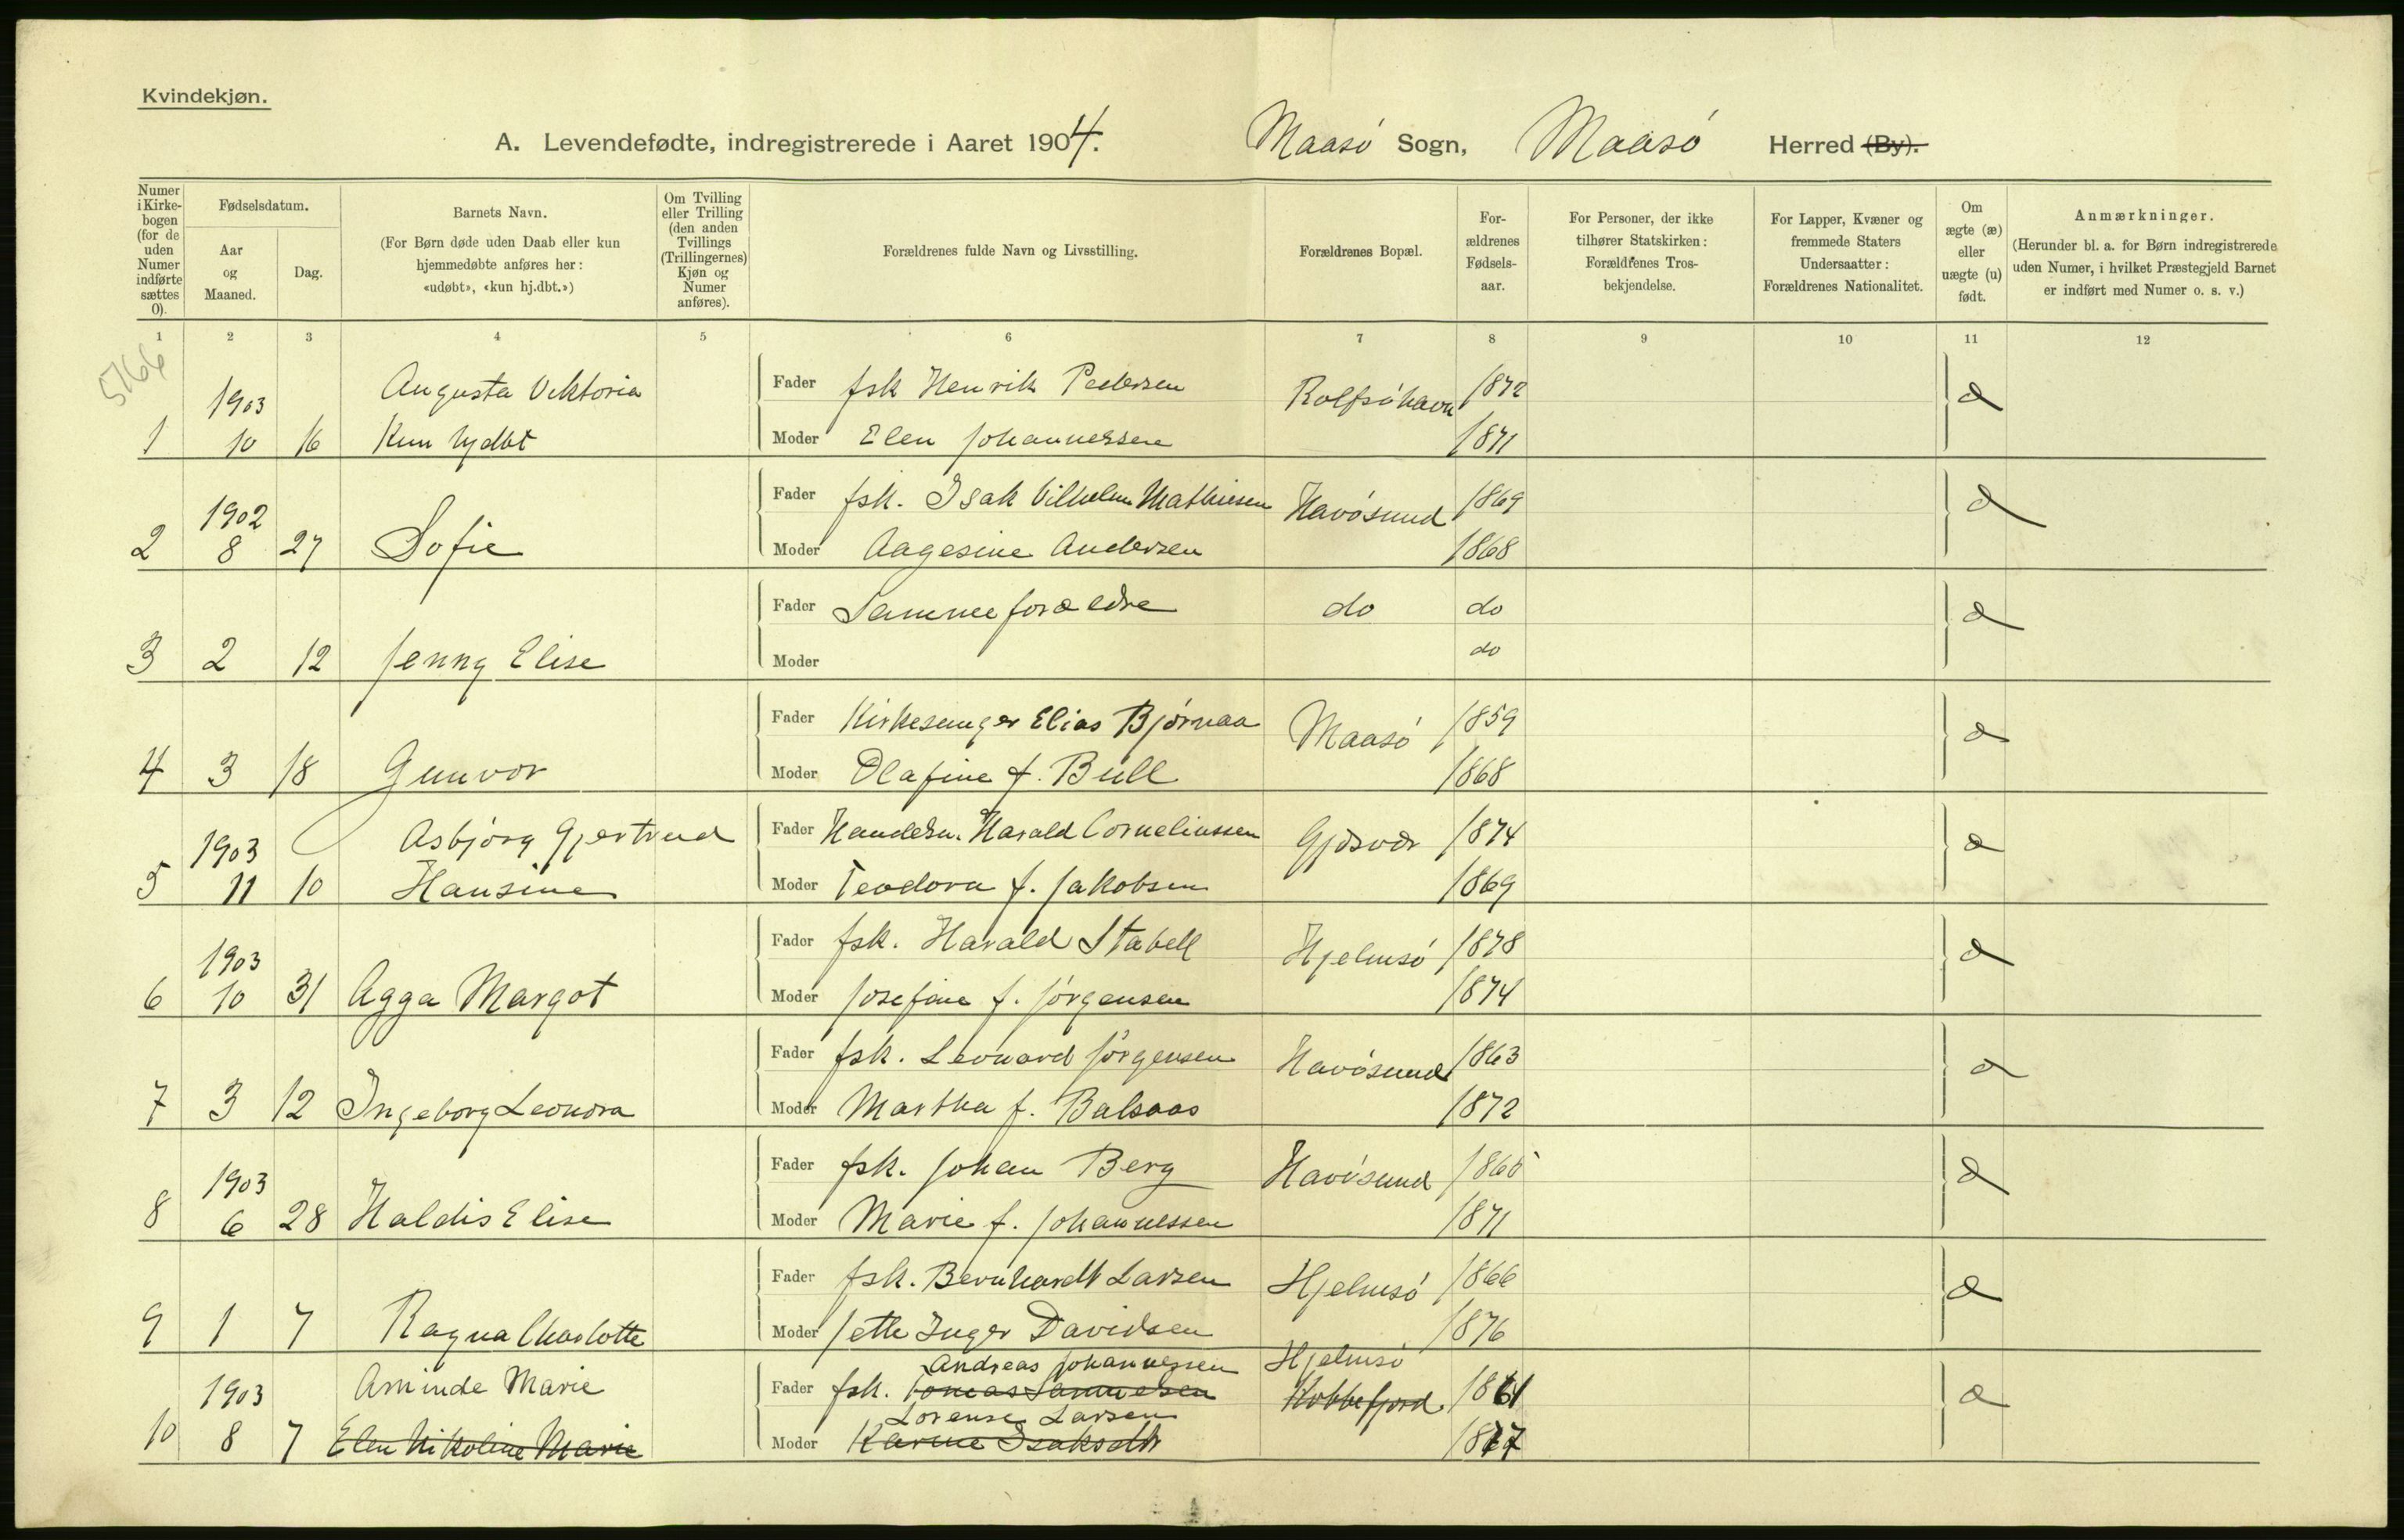 Kvindekjøn.
A. Levendefødte, indregistrerede i Aaret 1904. Maasö Sogn, Maasö Herred (By).
Numer i Kirke-bogen (for de uden Numer indførte sættes 0).
Fødselsdatum.
Aar og Maaned.
Dag.
Barnets Navn.
(For Børn døde uden Daab eller kun hjemmedøbte anføres her: «udøbt», «kun hj.dbt.»)
Om Tvilling eller Trilling (den anden Tvillings (Trillingernes) Kjøn og Numer anføres).
Forældrenes fulde Navn og Livsstilling.
Forældrenes Bopæl.
For-ældrenes Fødsels-aar.
For Personer, der ikke tilhører Statskirken: Forældrenes Tros-bekjendelse.
For Lapper, Kvæner og fremmede Staters Undersaatter: Forældrenes Nationalitet.
Om ægte (æ) eller uægte (u) født.
Anmærkninger.
(Herunder bl. a. for Børn indregistrerede uden Numer, i hvilket Præstegjeld Barnet er indført med Numer o. s. v.)
1 2 3 4 5 6 7 8 9 10 11 12
5766
1903 Augusta Viktoria Fader fsk Henrik Pedersen Rolfsöhavn 1872 æ
1 10 16 Kun hjdbt Moder Elen Johannessen 1871
1902 Fader fsk. Isak Vilhelm Mathiesen Havösund 1869 æ
2 8 27 Sofie Moder Aagesine Andersen 1868
Fader Samme forældre do do æ
3 2 12 Jenny Elise Moder do
Fader Kirkesanger Elias Björnaa Maasö 1859 æ
4 3 18 Gunvor Moder Olafine f. Bull 1868
1903 Asbjörg Gjertrud Fader Handelsm. Harald Corneliussen Gjæsvær 1874 æ
5 11 10 Hansine Moder Teodora f. Jakobsen 1869
1903 Fader fsk. Harald Stabell Hjelmsö 1878 æ
6 10 31 Agga Margot Moder Josefine f. Jörgensen 1874
Fader fsk. Leonard Jörgensen Havösund 1863 æ
7 3 12 Ingeborg Leonora Moder Martha f. Balsaas 1872
1903 Fader fsk. Johan Berg Havösund æ
8 6 28 Haldis Elise Moder Marie f. Johannessen 1871
Fader fsk. Bernhardt Larsen Hjelmsö 1866 æ
9 1 7 Ragna Charlotte Moder Jette Inger Davidsen 1876
Andreas Johannessen Hjelmsö
1903 Aminde Marie Fader fsk. Tomas Samuelsen Kobbefjord 1861 æ
Lorense Larsen
10 8 7 Elen Nikoline Marie Moder Karine Isaksdtr 1877